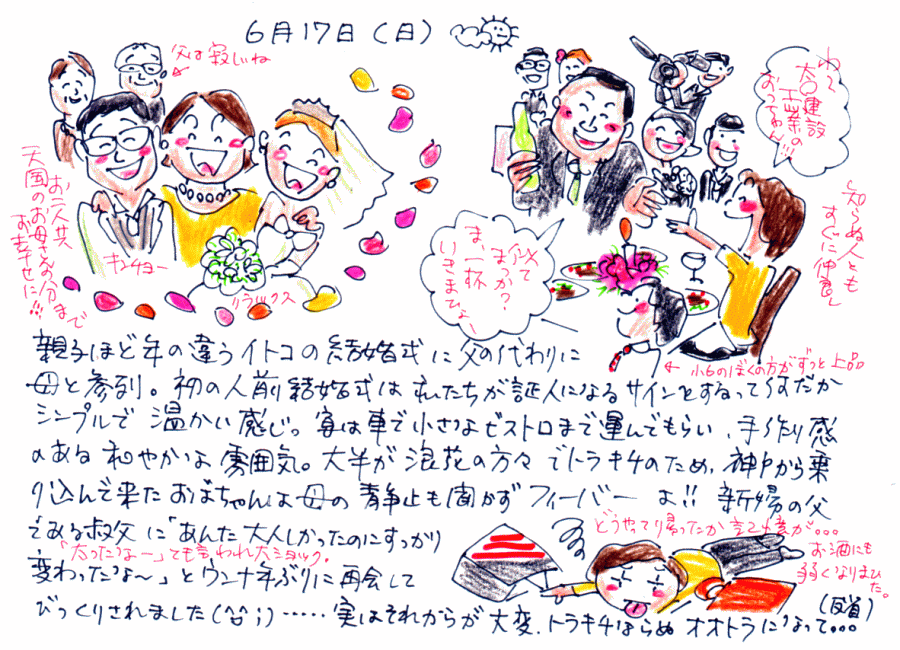 6月17日（日）
父は寂しいね
お二人共
天国のお母さんの分まで
お幸せに!!!
キンチョー
リラックス
わて
大〇建設
工業の
おってねん!!!
知らぬ人とも
すぐに仲良し
似て
まっか?
ま、一杯
いきまひょー
小6のぼくの方がずっと上品
親子ほど年の違うイトコの結婚式に父の代わりに
母と参列。初の人前結婚式は私たちが証人になるサインをするって何だか
シンプルで温かい感じ。宴は車で小さなビストロまで運んでもらい、手作り感
のある和やかな雰囲気。大半が浪花の方々でトラキチのため、神戸から乗
り込んで来たおばちゃんは母の静止も聞かずフィーバーよ!! 新婦の父
である叔父に「あんた大人しかったのにすっかり
「太ったなー」ても言われ大ショック。
変わったな〜」とウン十年ぶりに再会して
びっくりされました(^^;)……実はそれからが大変、トラキチならぬオオトラになって…
どうやって帰ったか記憶が…
お酒にも
弱くなりまひ
た。
(反省)